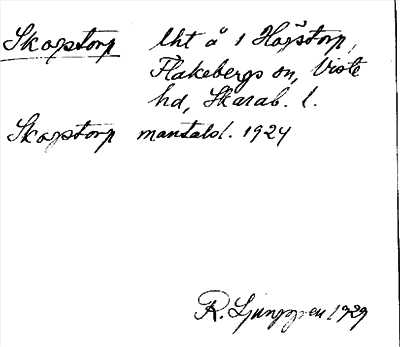 Skogstorp lht å 1 Högstorp,
Flakebergs sn, Viste
hd, Skarab. l.
Skogstorp mantalsl. 1924
R. Ljunggren 1929